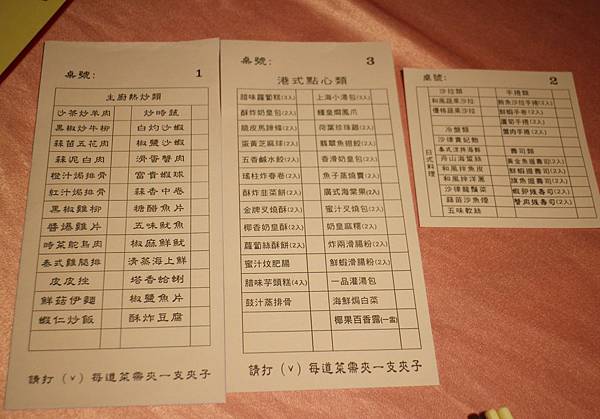 桌號: 1
主廚熱炒類
沙茶炒羊肉 炒時蔬
黑椒炒牛柳 白灼沙蝦
蒜苗五花肉 椒鹽沙蝦
蒜泥白肉 滑蛋蟹肉
橙汁焗排骨 富貴蝦球
紅汁焗排骨 蒜香中卷
黑椒雞柳 糖醋魚片
醬爆雞片 五味魷魚
時菜鴕鳥肉 椒麻鮮魷
泰式雞腿排 清蒸海上鮮
皮皮挫 塔香蛤蜊
鮮菇伊麵 椒鹽魚片
蝦仁炒飯 酥炸豆腐
請打(v)每道菜需夾一支夾子
桌號: 3
港式點心類
腊味蘿蔔糕(3入) 上海小湯包(3入)
酥炸奶皇包(2入) 鱆皇燜鳳爪
脆皮馬蹄條(2入) 荷葉珍珠雞(2入)
蛋黃芝麻球(2入) 翡翠魚翅餃(2入)
五香鹹水餃(2入) 香滑奶皇包(2入)
瑤柱炸春卷(2入) 魚子蒸燒賣(2入)
酥炸韭菜餅(2入) 廣式海棠果(2入)
金牌叉燒酥(2入) 蜜汁叉燒包(2入)
椰香奶皇酥(2入) 奶皇麻糬(2入)
蘿蔔絲酥餅(2入) 炸兩滑腸粉(2入)
蜜汁炆肥腸 鮮蝦滑腸粉(2入)
腊味芋頭糕(4入) 一品灌湯包
鼓汁蒸排骨 海鮮焗白菜
椰果百香露(一壺)
請打(v)每道菜需夾一支夾子
桌號: 2
日式料理
沙拉類 手捲類
和風蔬果沙拉 鮪魚沙拉手捲(2入)
優格蔬果沙拉 鮮蝦手卷(2入)
蘆筍手捲(2入)
冷盤類 蟹肉手捲(2入)
沙律賣妃鮑
泰式五拼海鮮 壽司類
舟山海蜇絲 黃金魚翅壽司(2入)
和風拌魚皮 鮮蝦握壽司(2入)
和風拌洋蔥 旗魚握壽司(2入)
沙律龍鬚菜 蝦卵握壽司(2入)
蒜苗沙魚煙 蟹肉握壽司(2入)
五味軟絲